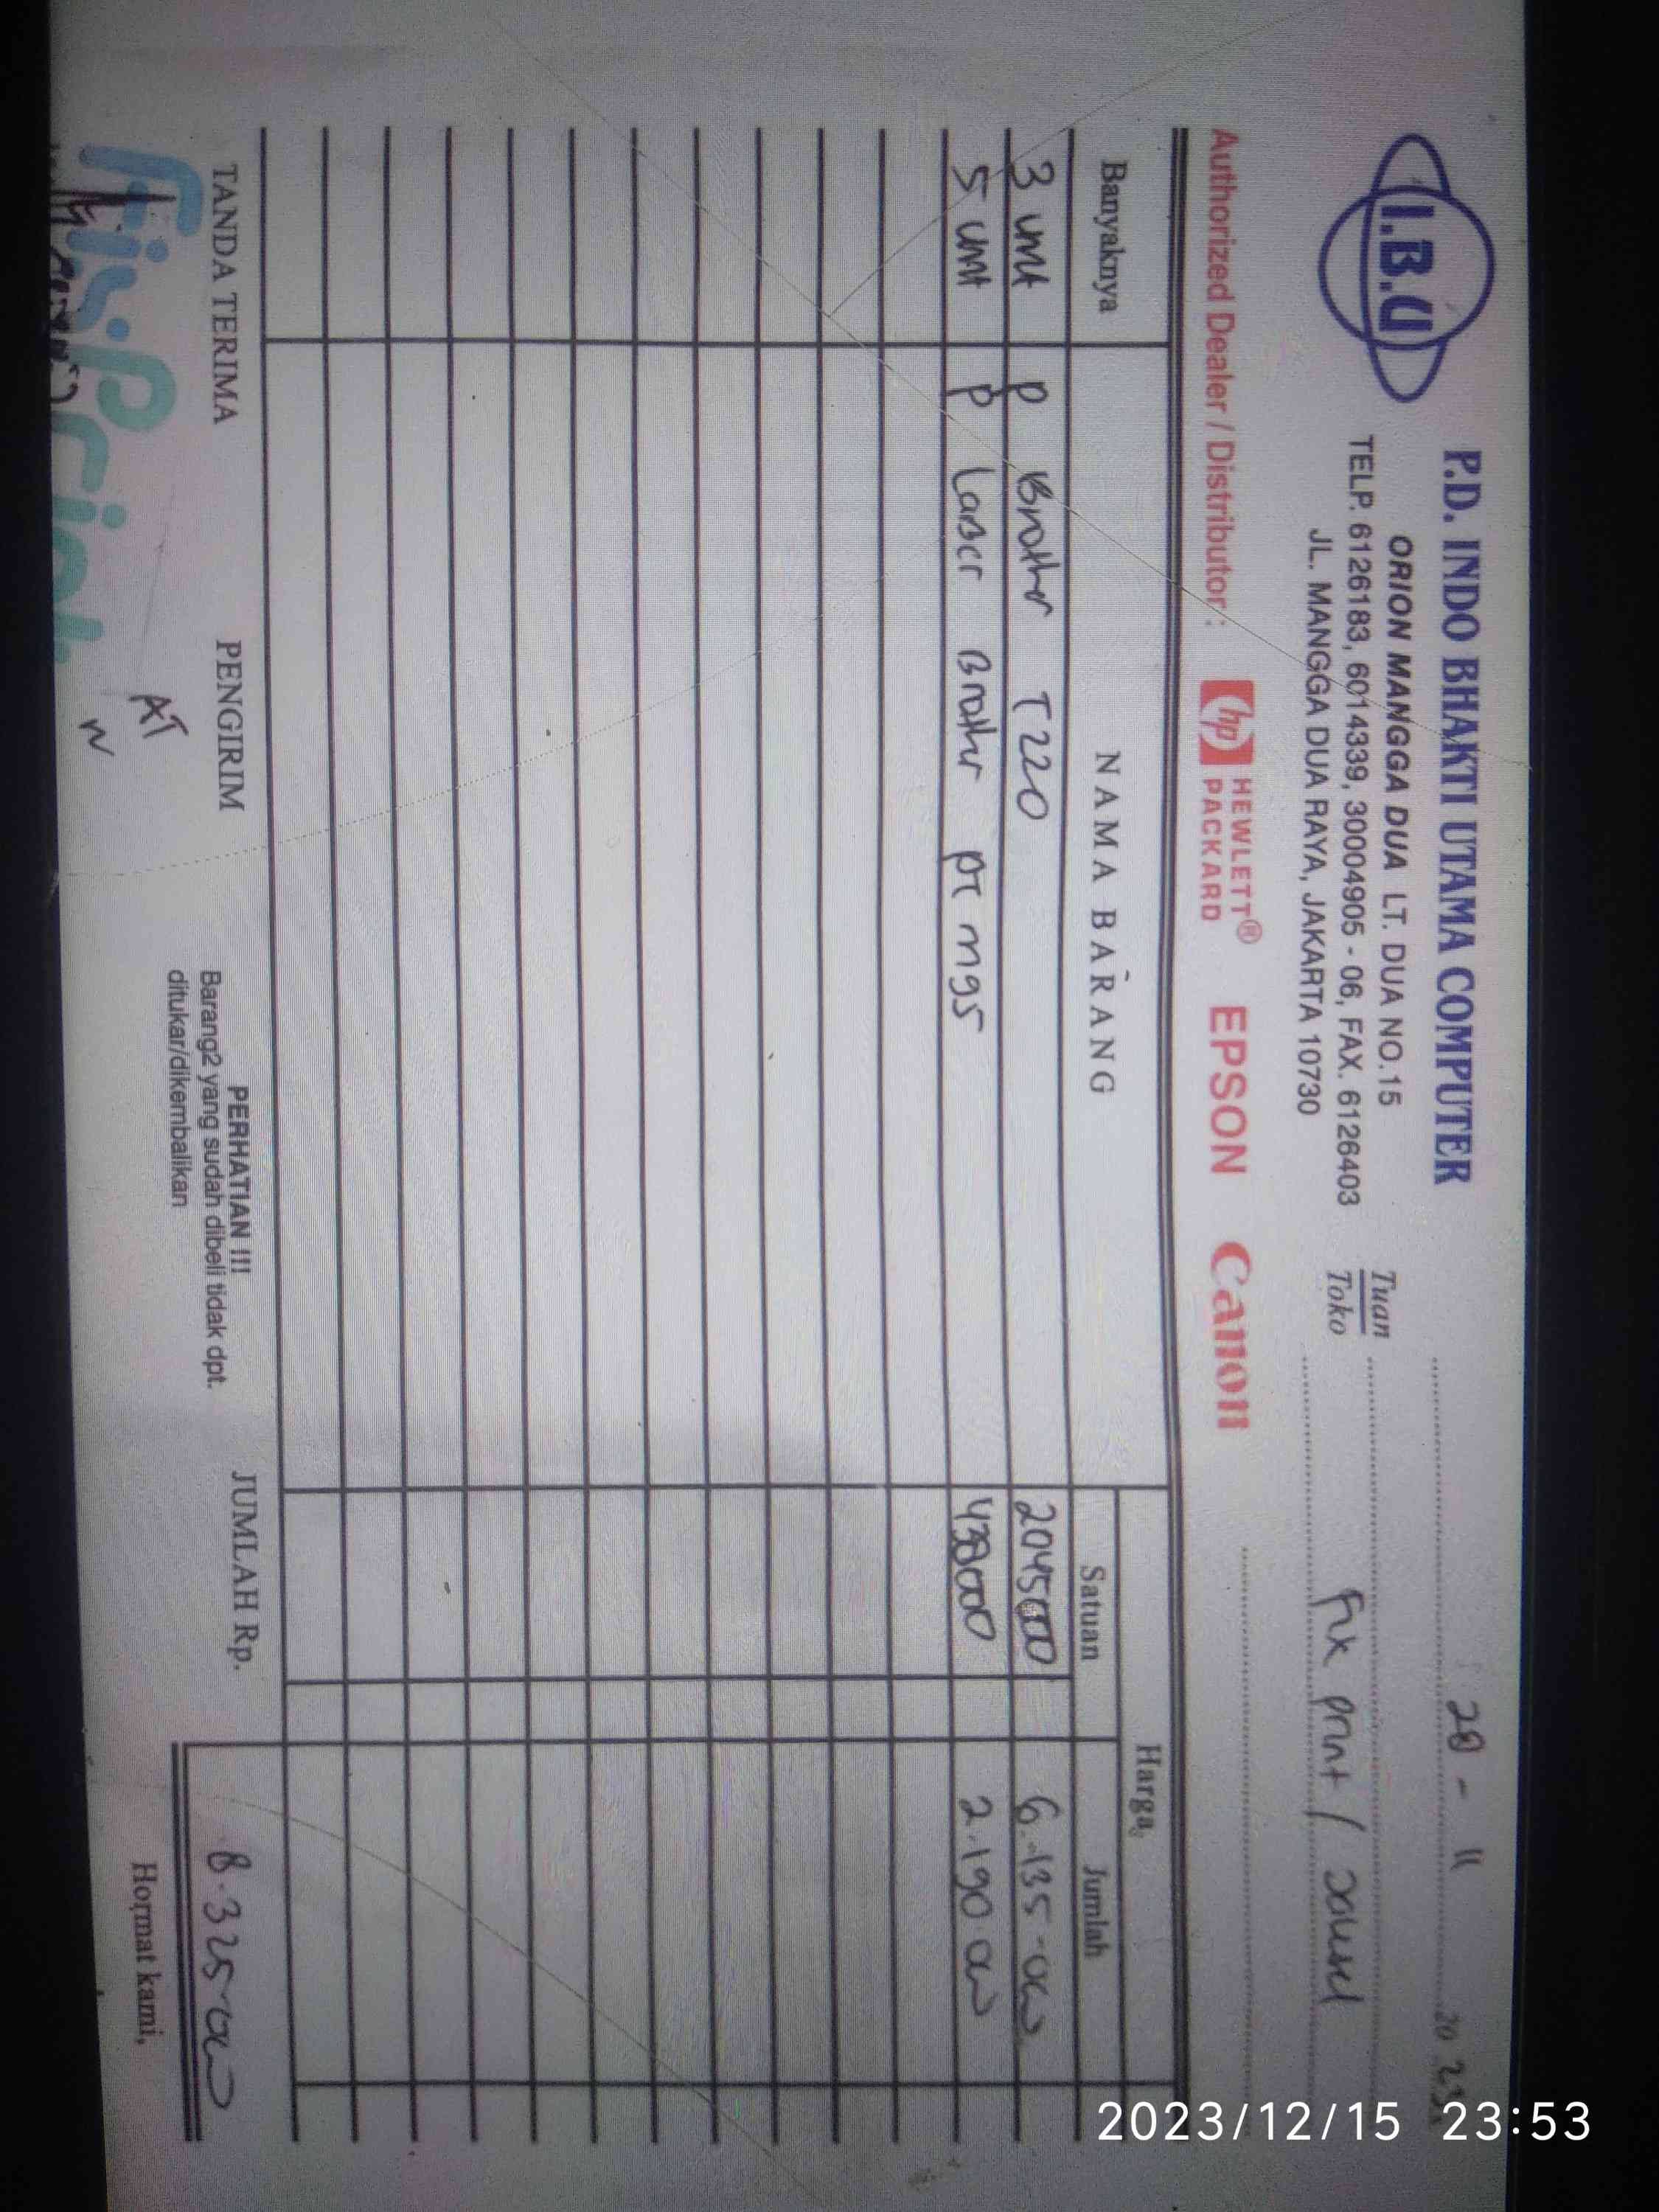 I.B.U
P.D. INDO BHAKTI UTAMA COMPUTER
ORION MANGGA DUA LT. DUA NO.15
TELP. 6126183, 6014339, 30004905 - 06, FAX. 6126403
JL. MANGGA DUA RAYA, JAKARTA 10730
28 - 11 20 23
Tuan
Toko
Fix print /
Authorized Dealer / Distributor : hp HEWLETT® PACKARD EPSON Canon
Banyaknya NAMA BARANG Harga
Satuan Jumlah
3 unit P Brother T220 2045000 6.135.000
5 unit P Laser Brother PT M95 438000 2.190.000
TANDA TERIMA PENGIRIM
PERHATIAN !!!
Barang2 yang sudah dibeli tidak dpt.
ditukar/dikembalikan
JUMLAH Rp. 8.325.000
Hormat kami,
AT
2023/12/15 23:53